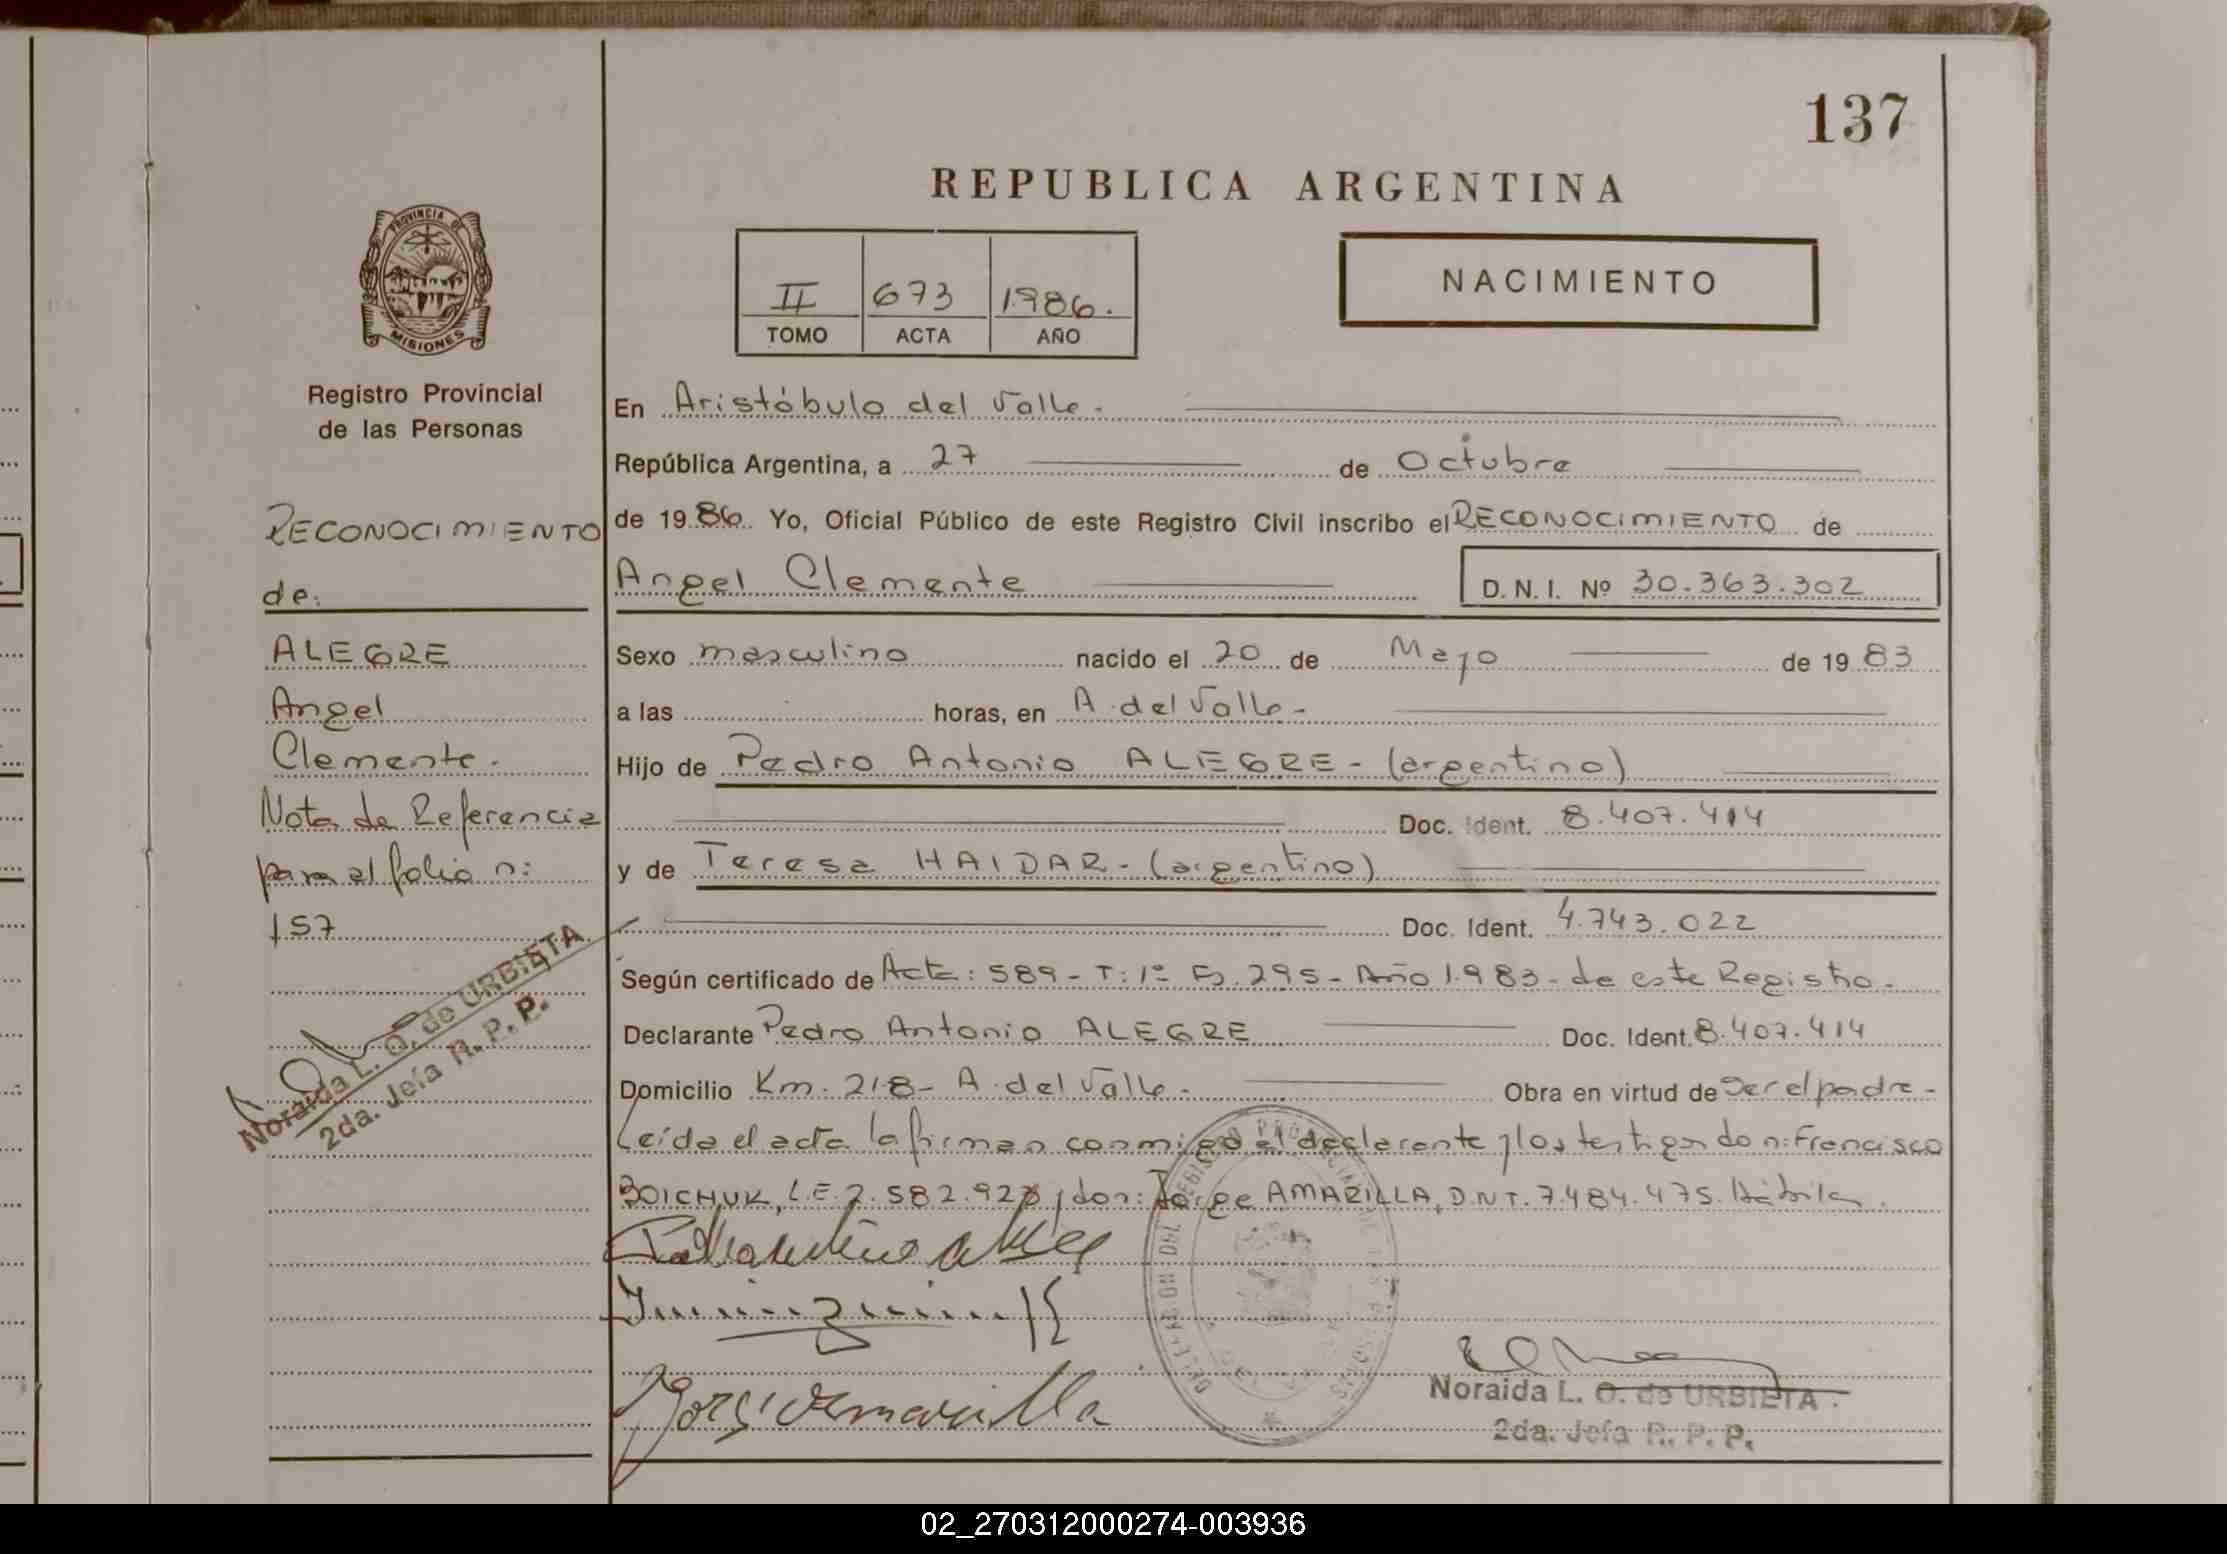 137
REPUBLICA ARGENTINA
PROVINCIA DE
MISIONES
II 673 1986.
TOMO ACTA AÑO
NACIMIENTO
Registro Provincial
de las Personas
RECONOCIMIENTO
de:
ALEGRE
Angel
Clemente.
Nota de Referencia
para el folio n:
157
Noraida L. O. de URBIETA
2da. Jefa R. P. P.
En Aristóbulo del Valle.
República Argentina, a 27 de Octubre
de 1986. Yo, Oficial Público de este Registro Civil inscribo el RECONOCIMIENTO de
Angel Clemente D. N. I. Nº 30.363.302
Sexo masculino nacido el 20 de Mayo de 1983
a las horas, en A. del Valle-
Hijo de Pedro Antonio ALEGRE - (argentino)
Doc. Ident. 8.407.414
y de Teresa HAIDAR - (argentino)
Doc. Ident. 4.743.022
Según certificado de Acta: 589 - T: 1º Fº. 295 - Año 1983 - de este Registro.
Declarante Pedro Antonio ALEGRE Doc. Ident. 8.407.414
Domicilio Km. 218 - A. del Valle. Obra en virtud de Ser el padre -
Leída el acta la firman conmigo el declarante y los testigos don: Francisco
BOICHUK, L.E. 2.582.92 y don: Jorge AMARILLA, D.N.I. 7.484.475. Hábiles.
Jorge Amarilla
Noraida L. O. de URBIETA
2da. Jefa R. P. P.
02_270312000274-003936